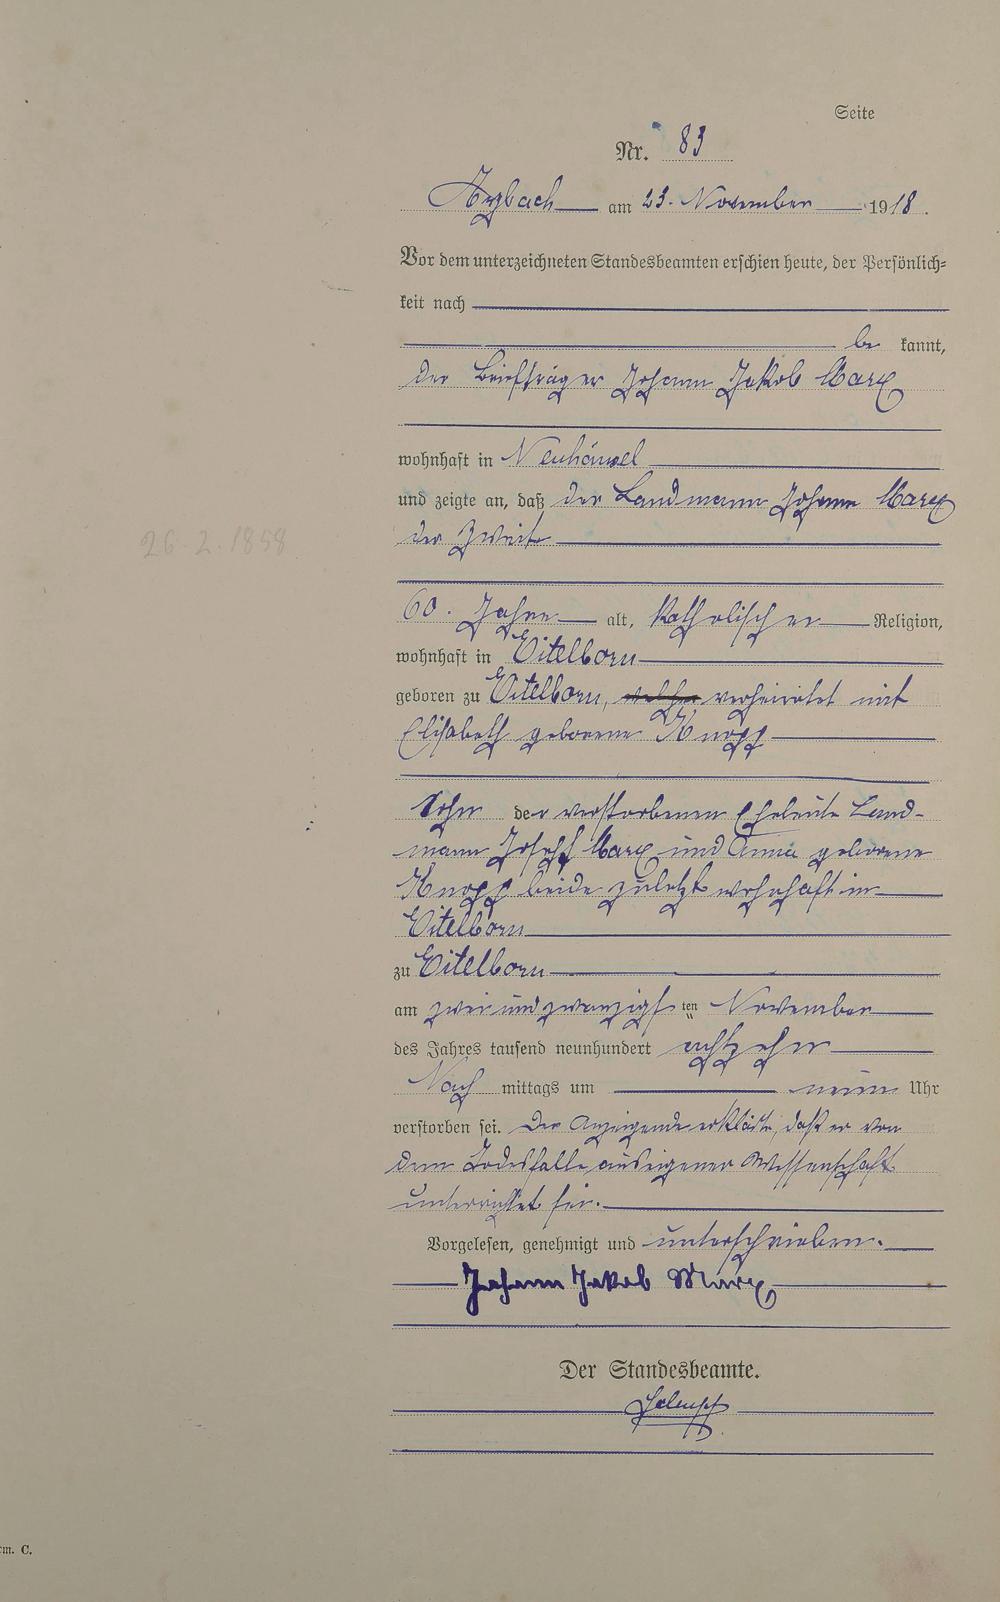 Seite
Nr. 83
Arzbach am 23. November 1918.
Vor dem unterzeichneten Standesbeamten erschien heute, der Persönlich-
keit nach
be kannt,
der Briefträger Johann Jakob Marx
wohnhaft in Neuhäusel
und zeigte an, daß der Landmann Johann Marx
der Zweite
26.2.1858
60. Jahre alt, katholischer Religion,
wohnhaft in Eitelborn
geboren zu Eitelborn, welcher verheiratet mit
Elisabeth geborene Knopp
Sohn der verstorbenen Eheleute Land-
mann Joseph Marx und Anna geborene
Knopp beide zuletzt wohnhaft in
Eitelborn
zu Eitelborn
am zwei und zwanzigsten November
des Jahres tausend neunhundert achtzehn
Nach mittags um neun Uhr
verstorben sei. Der Anzeigende erklärte, daß er von
dem Todesfalle aus eigener Wissenschaft
unterrichtet sei.
Vorgelesen, genehmigt und unterschrieben.
Johann Jakob Marx
Der Standesbeamte.
rm. C.